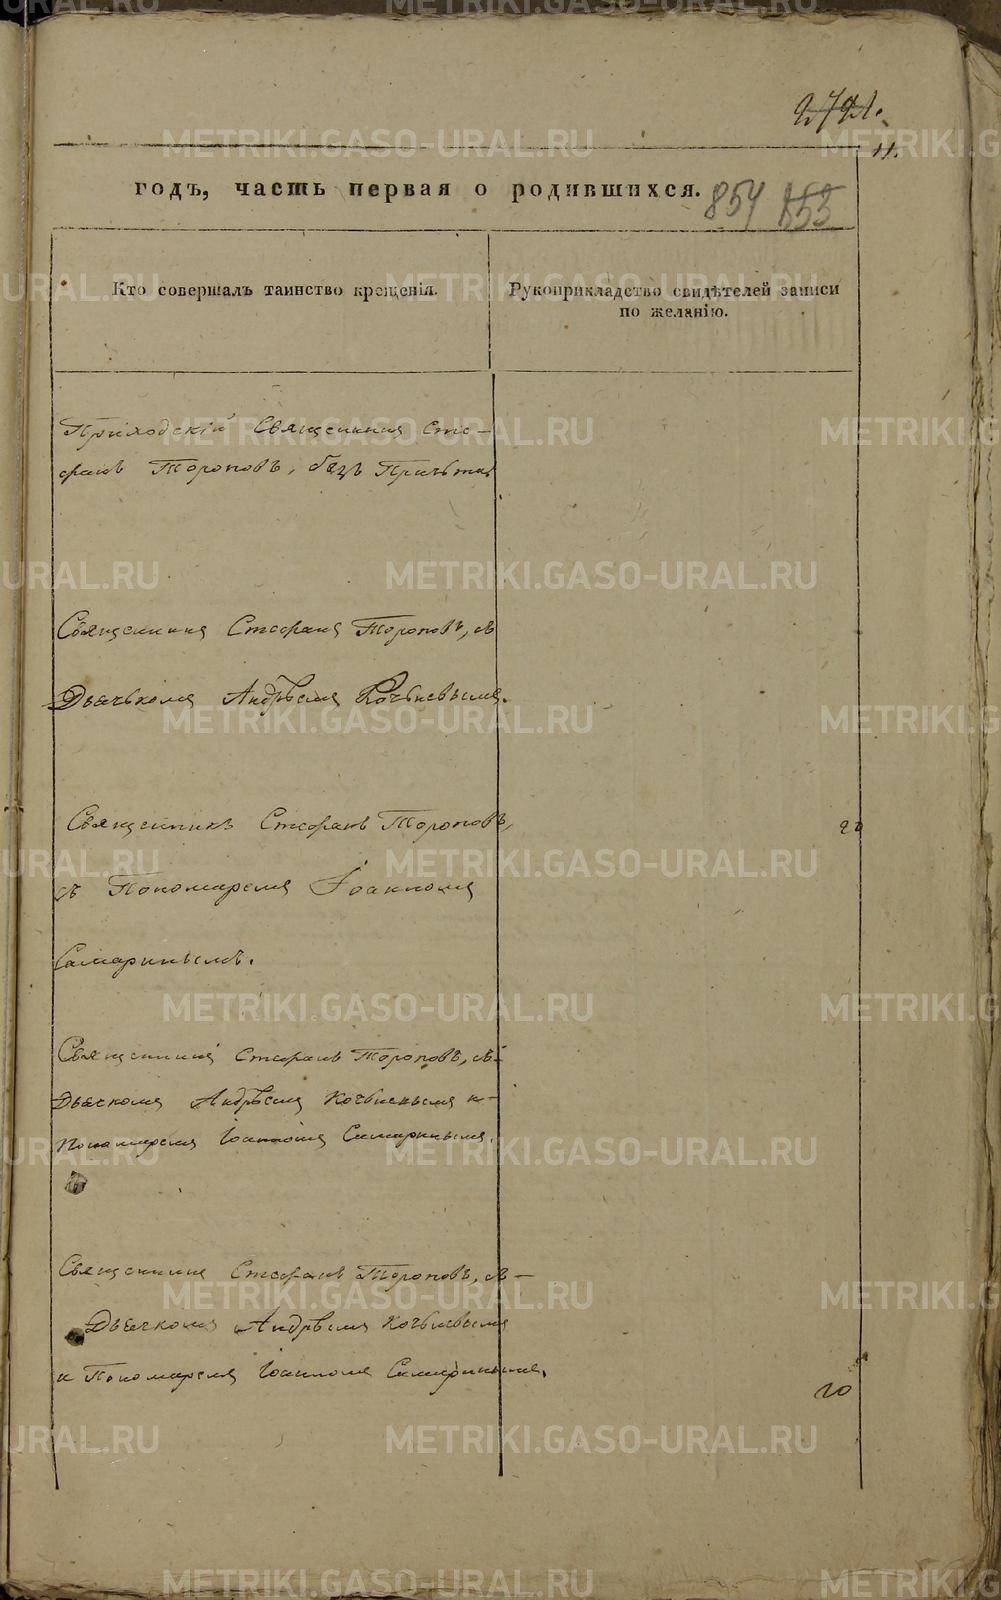 11.
годъ, часть первая о родившихся. 854
Кто совершалъ таинство крещенія.
Рукоприкладство свидѣтелей записи
по желанію.
Приходскій Священникъ Сте-
фанъ Тороповъ, безъ Причта
Священникъ Стефанъ Тороповъ, съ
Дьячькомъ Андрѣемъ
Священникъ Стефанъ Тороповъ,
съ Пономаремъ Іоанномъ
Самаринымъ.
Священникъ Стефанъ Тороповъ, съ
Дьячкомъ Андрѣемъ и
Пономаремъ Іоанномъ Самаринымъ.
Священникъ Стефанъ Тороповъ, съ
Дьячкомъ Андрѣемъ
и Пономаремъ Іоанномъ Самаринымъ.
METRIKI.GASO-URAL.RU